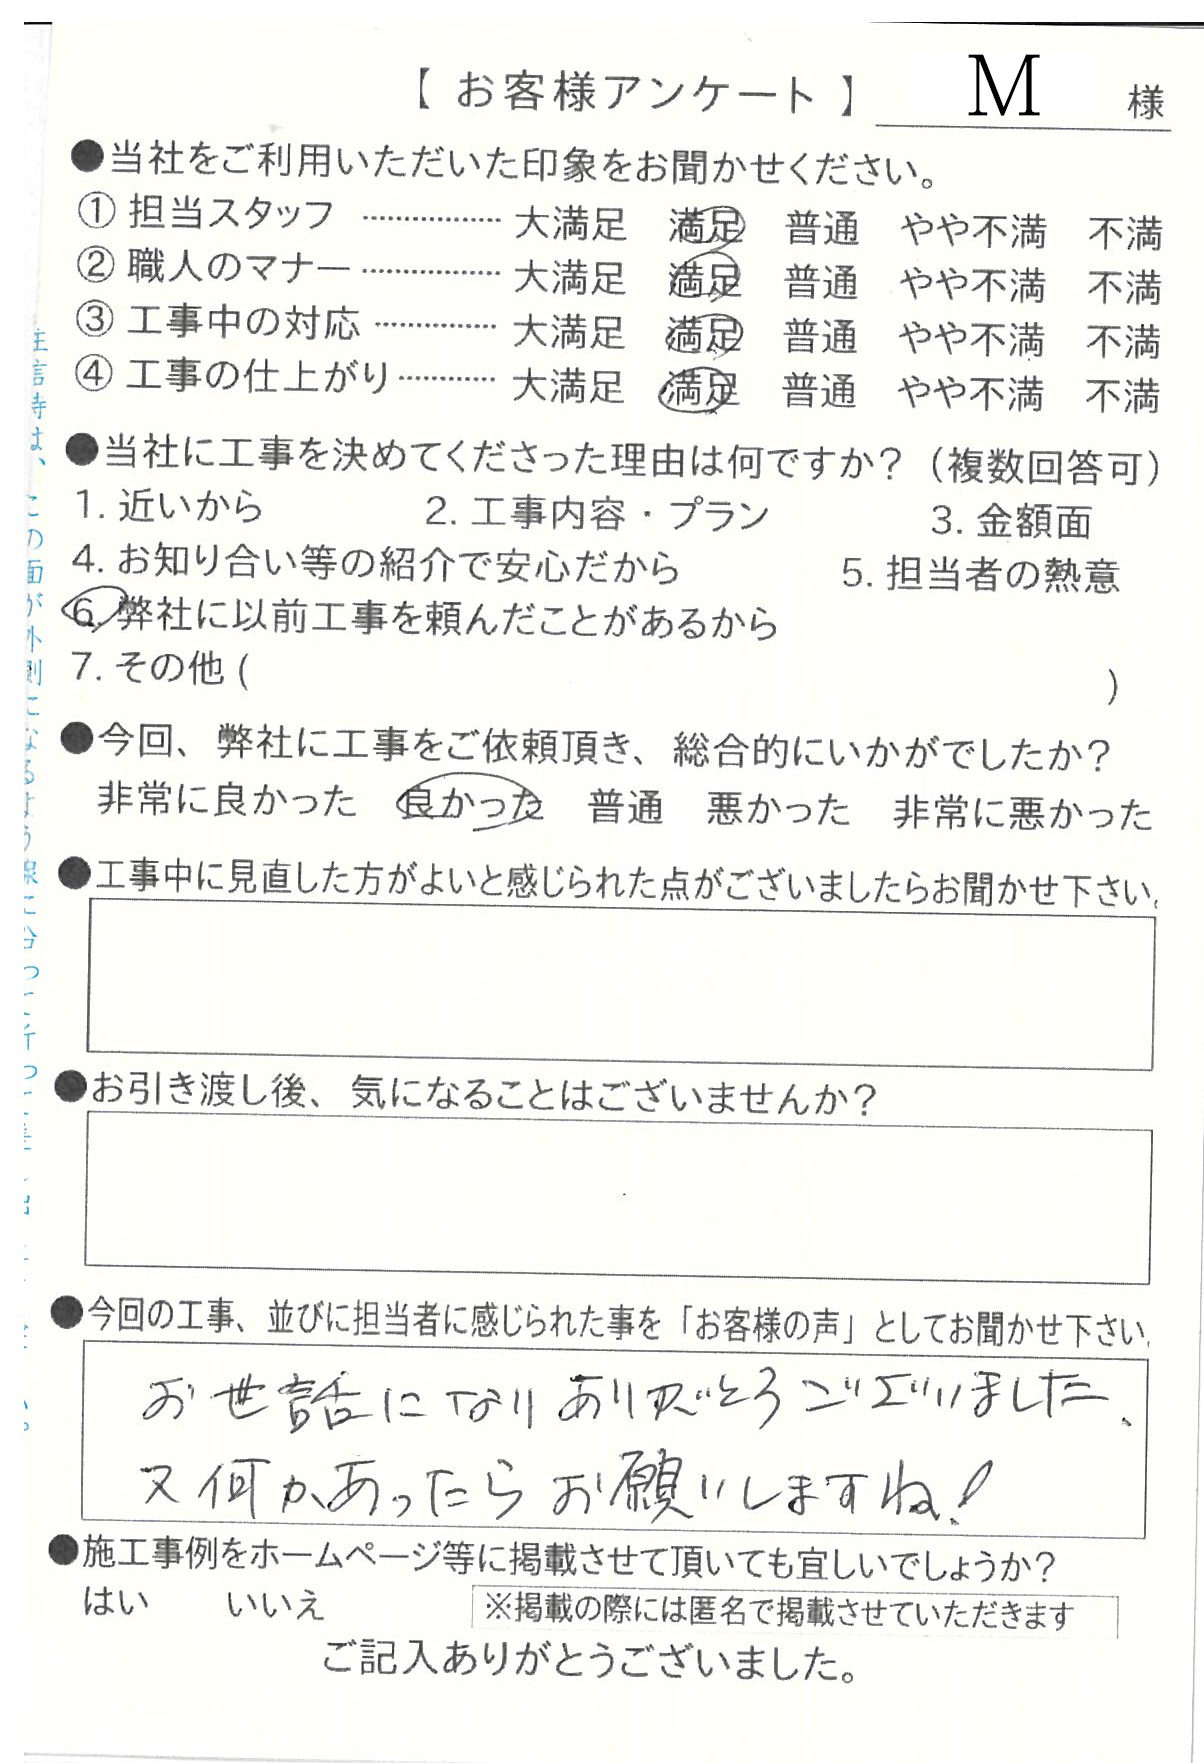 【 お客様アンケート 】 M 様
●当社をご利用いただいた印象をお聞かせください。
① 担当スタッフ ……………… 大満足 満足 普通 やや不満 不満
② 職人のマナー ……………… 大満足 満足 普通 やや不満 不満
③ 工事中の対応 …………… 大満足 満足 普通 やや不満 不満
④ 工事の仕上がり ………… 大満足 満足 普通 やや不満 不満
●当社に工事を決めてくださった理由は何ですか？（複数回答可）
1. 近いから 2. 工事内容・プラン 3. 金額面
4. お知り合い等の紹介で安心だから 5. 担当者の熱意
6. 弊社に以前工事を頼んだことがあるから
7. その他 ( )
●今回、弊社に工事をご依頼頂き、総合的にいかがでしたか？
非常に良かった 良かった 普通 悪かった 非常に悪かった
●工事中に見直した方がよいと感じられた点がございましたらお聞かせ下さい。
●お引き渡し後、気になることはございませんか？
●今回の工事、並びに担当者に感じられた事を「お客様の声」としてお聞かせ下さい。
お世話になりありがとうございました、
又何かあったらお願いしますね！
●施工事例をホームページ等に掲載させて頂いても宜しいでしょうか？
はい いいえ ※掲載の際には匿名で掲載させていただきます
ご記入ありがとうございました。